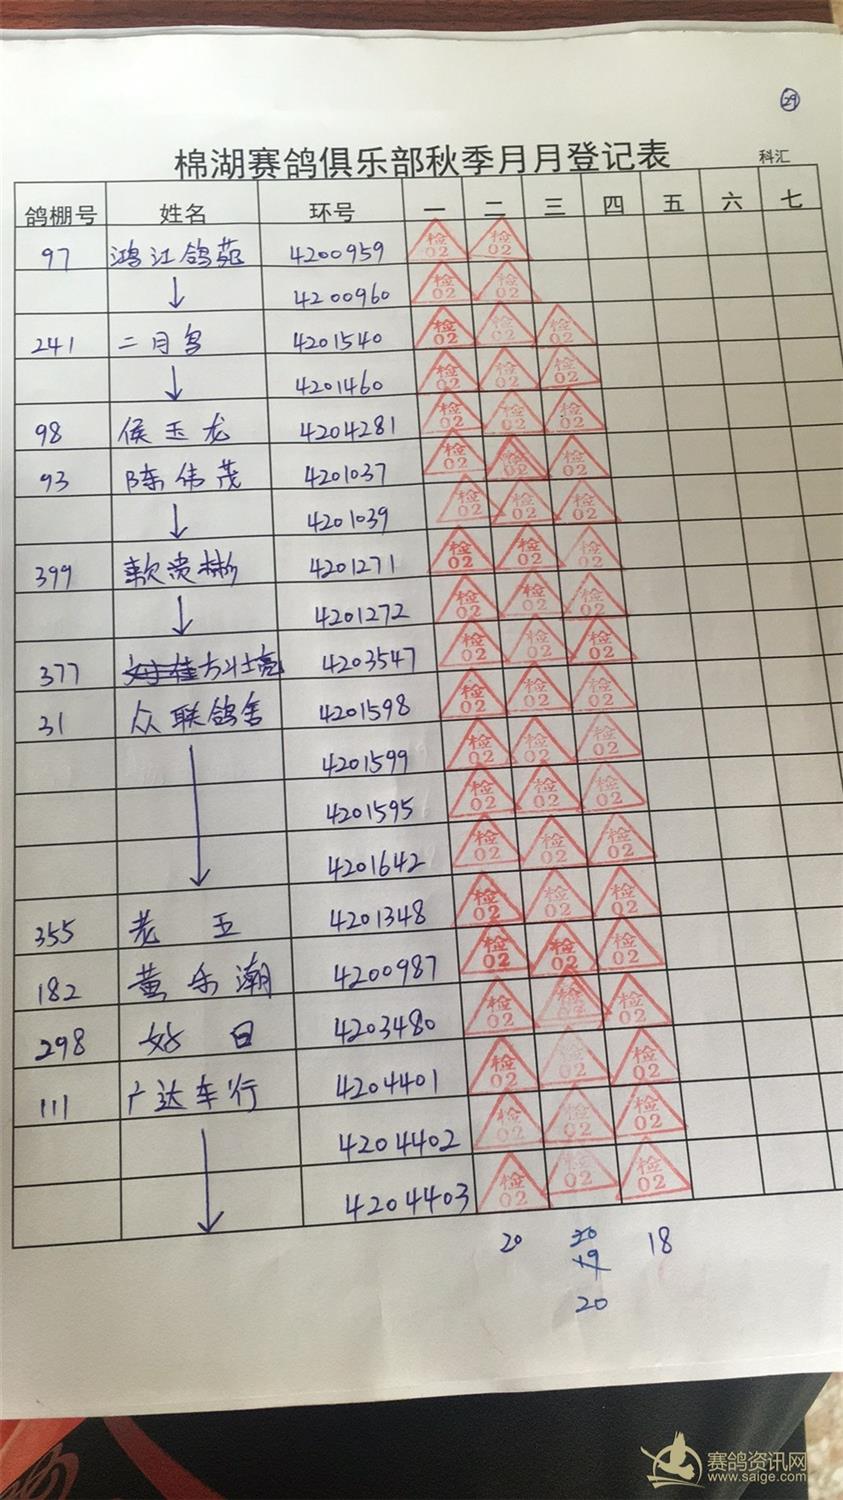 29
棉湖赛鸽俱乐部秋季月月登记表 科汇
鸽棚号 姓名 环号 一 二 三 四 五 六 七
97 鸿江鸽苑 4200959 检02 检02
↓ 4200960 检02 检02
241 二月鸟 4201540 检02 检02 检02
↓ 4201460 检02 检02 检02
98 侯玉龙 4204281 检02 检02 检02
93 陈伟茂 4201037 检02 检02 检02
↓ 4201039 检02 检02 检02
399 4201271 检02 检02 检02
↓ 4201272 检02 检02 检02
377 方壮亮 4203547 检02 检02 检02
31 众联鸽舍 4201598 检02 检02 检02
4201599 检02 检02 检02
4201595 检02 检02 检02
↓ 4201642 检02 检02 检02
355 老五 4201348 检02 检02 检02
182 黄乐潮 4200987 检02 检02 检02
298 好日 4203480 检02 检02 检02
111 广达车行 4204401 检02 检02 检02
4204402 检02 检02 检02
↓ 4204403 检02 检02 检02
20 20 18
19
20
赛鸽资讯网
www.saige.com